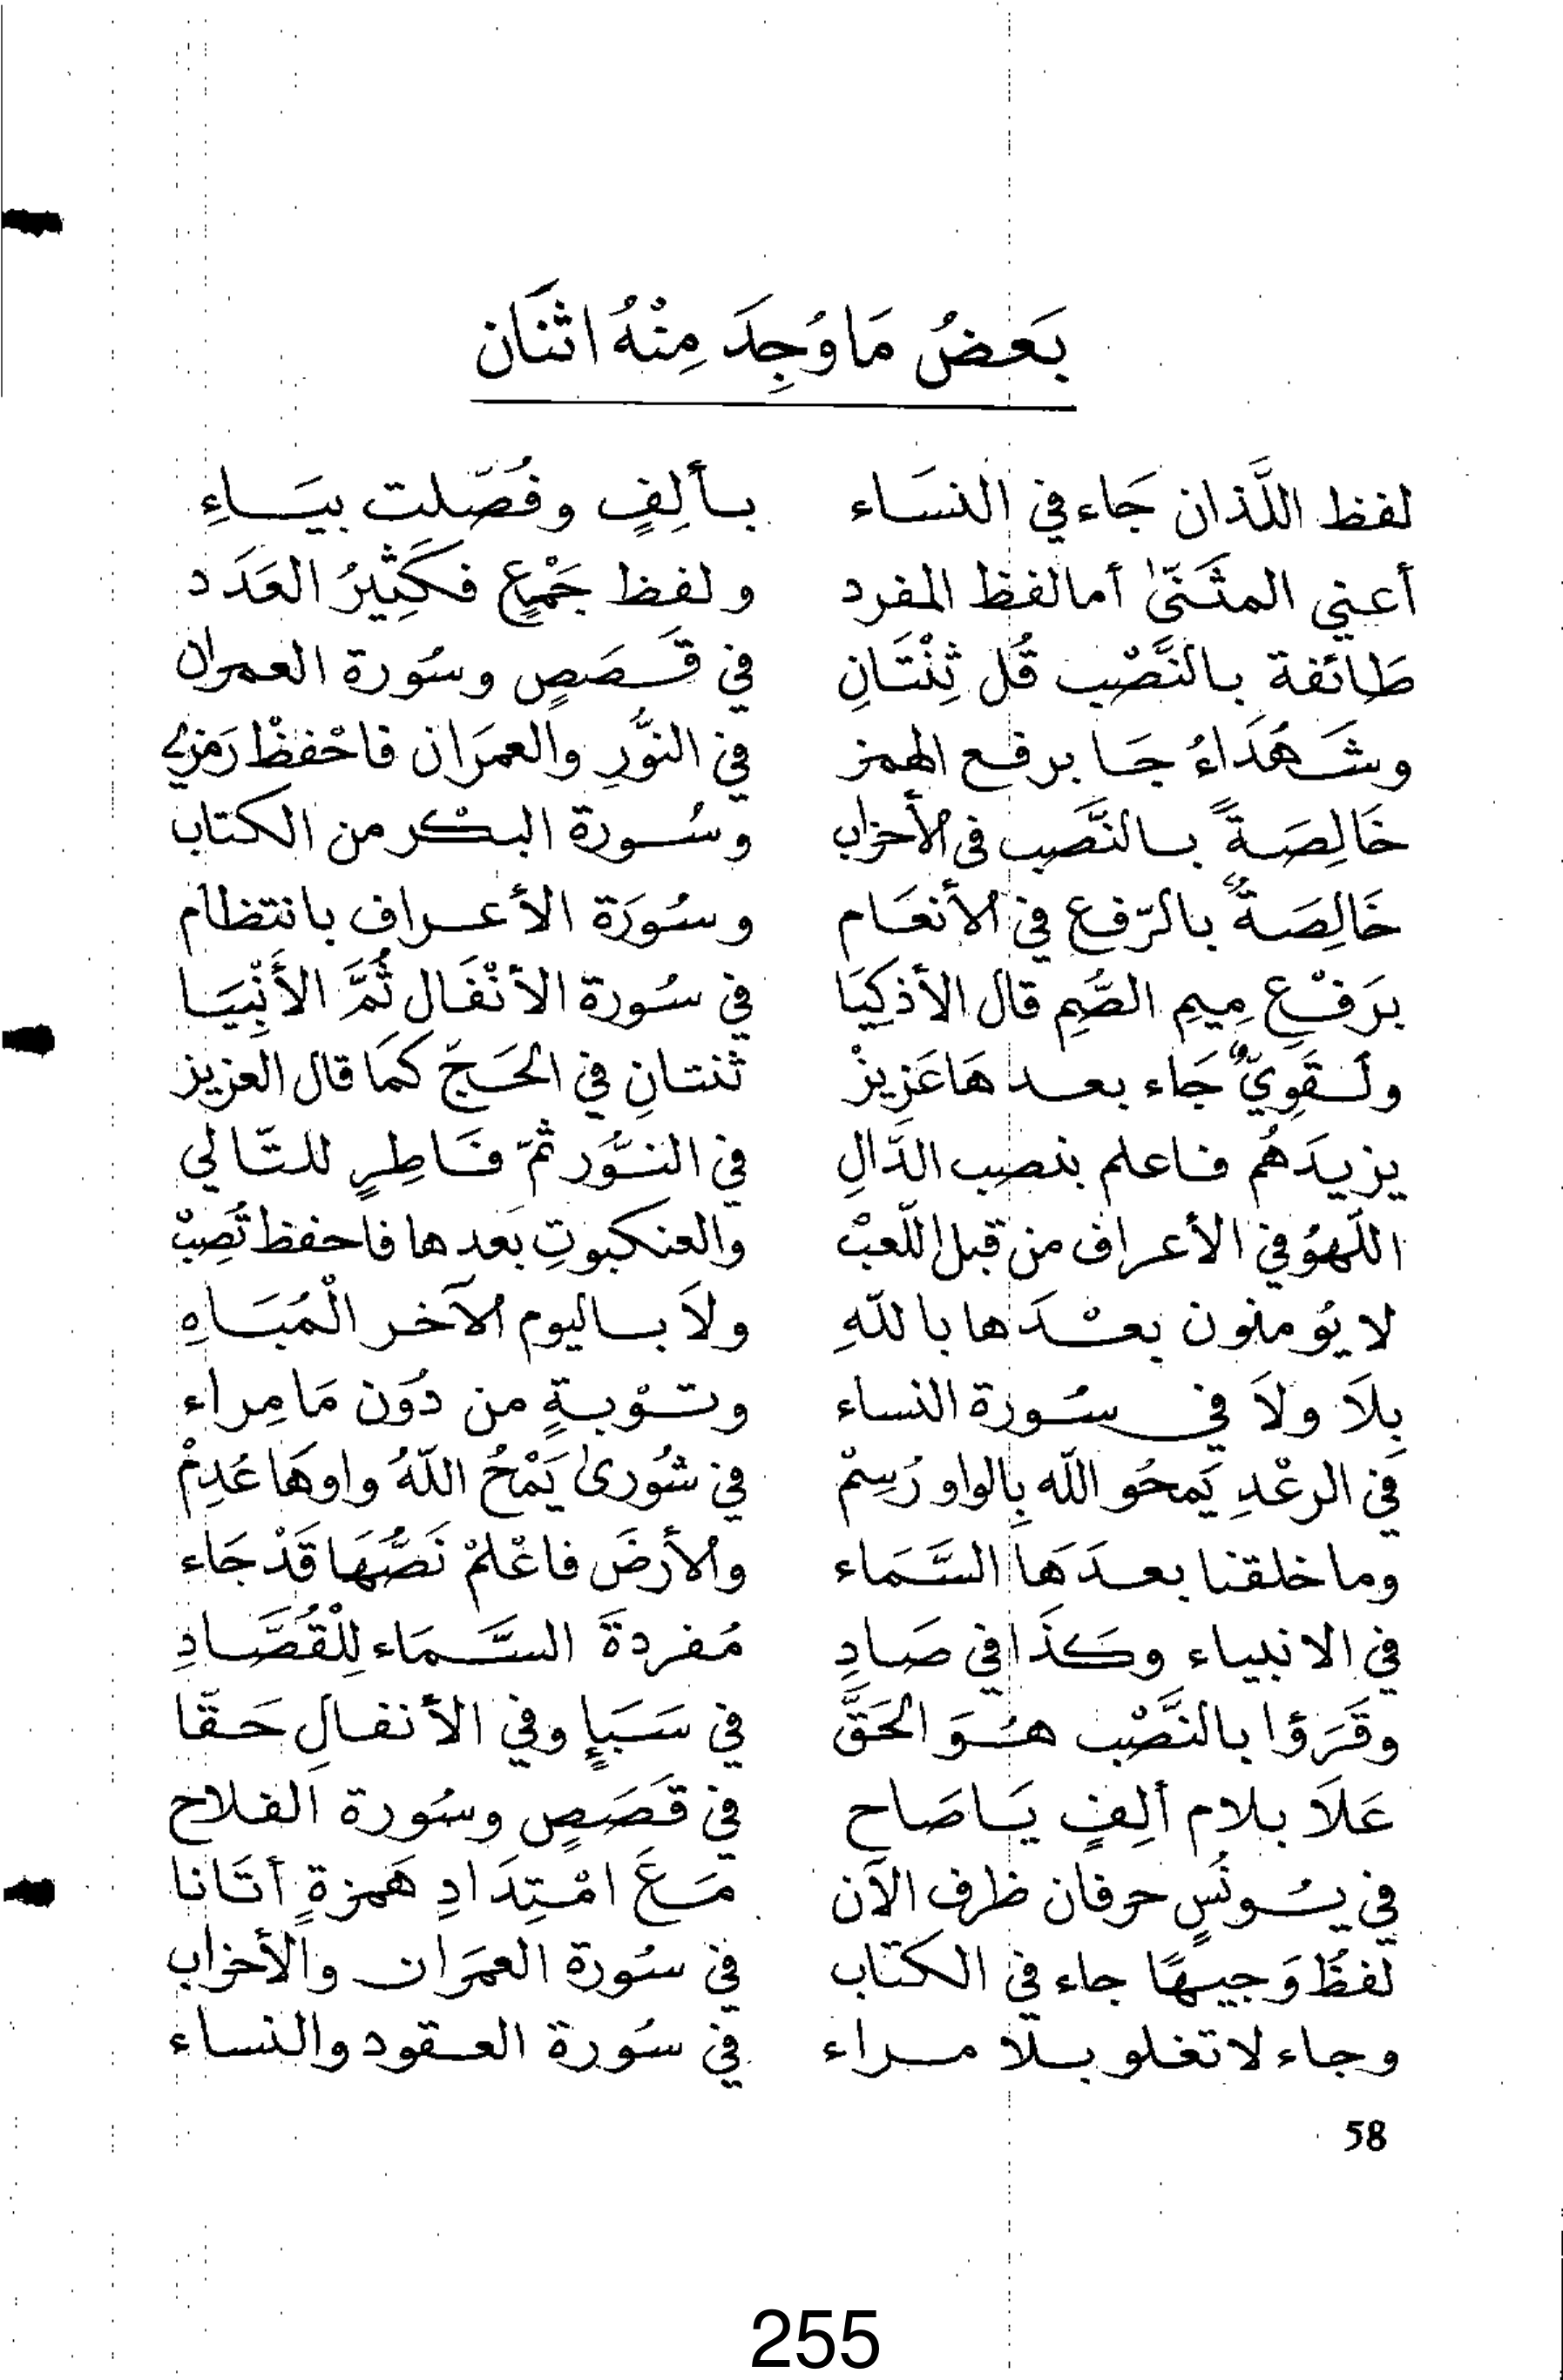 بَعَضُ مَا وُجِدَ مِنْهُ اثْنَان
لفظ اللَّذان جَاء في النسَاء بألِفٍ وفُصّلت بيَاءِ
أعني المثَنّىٰ أما لفظ المفرد ولفظ جَمْعٍ فكَثِيرُ العَدَد
طَائفة بالنَّصْب قُل ثِنْتَانِ في قَصَصٍ وسُورة العمران
وشَهُدَاءُ جَا برفع الهمز في النوُّرِ والعمَران فاحْفظْ رَمزي
خَالِصَةً بالنَّصَب في الأحزاب وسُورة البكر من الكتاب
خَالِصَةٌ بالرّفع في الأنعَام وسُورَة الأعراف بانتظام
برَفْعِ مِيمِ الصُّمِ قال الأذكِيَا في سُورة الأنْفَال ثُمَّ الأَنْبِيَا
ولَقَوِيٌّ جَاء بعدهَا عَزِيزْ ثنتانِ في الحَجّ كمَا قال العزيز
يزيدَهُم فاعلم بنصب الدّالِ في النوُّر ثمّ فَاطِرٍ للتّالي
اللّهوُ في الأعراف من قبل اللّعبْ والعنكبوتِ بَعدها فاحفظ تُصِبْ
لا يُومنون بعْدَها باللّهِ ولاَ باليوم الآخر الْمُبَاهِ
بِلاَ ولاَ في سُورة النساء وتوْبةٍ من دُوَن مَا مِراء
في الرعْدِ يَمحُو اللّه بِالواو رُسِمْ في شُورىٰ يَمْحُ اللّهُ واوهَا عُدِمْ
وما خلقنا بعدَهَا السَّمَاء والأرضَ فاعْلمْ نَصُّهَا قَدْ جَاء
في الانبياء وكَذَا في صَادِ مُفردةَ السَّمَاء لِلْقُصَّادِ
وقَرَؤا بالنَّصْب هُوَ الحَقَّ في سَبَإٍ وفي الأنفالِ حَقّا
عَلاَ بلام ألِفٍ يَا صَاح في قَصَصٍ وسُورة الفلاح
في يُونُسٍ حرفان ظرف الآن مَعَ امْتِدَادِ هَمزةٍ أتَانا
لَفظُ وَجيهًا جاء في الكتاب في سُورة العمَران والأحزاب
وجاء لا تغلو بلا مراء في سُورة العقود والنساء
58
255